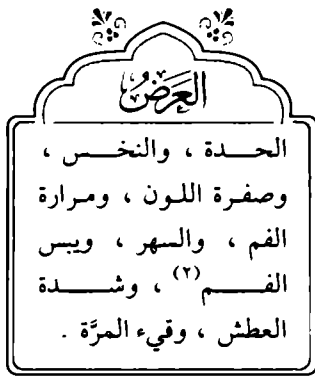 العَرَضُ
الحدة ، والنخس ،
وصفرة اللون ، ومرارة
الفم ، والسهر ، ويبس
الفم(٢) ، وشدة
العطش ، وقيء المرَّة .